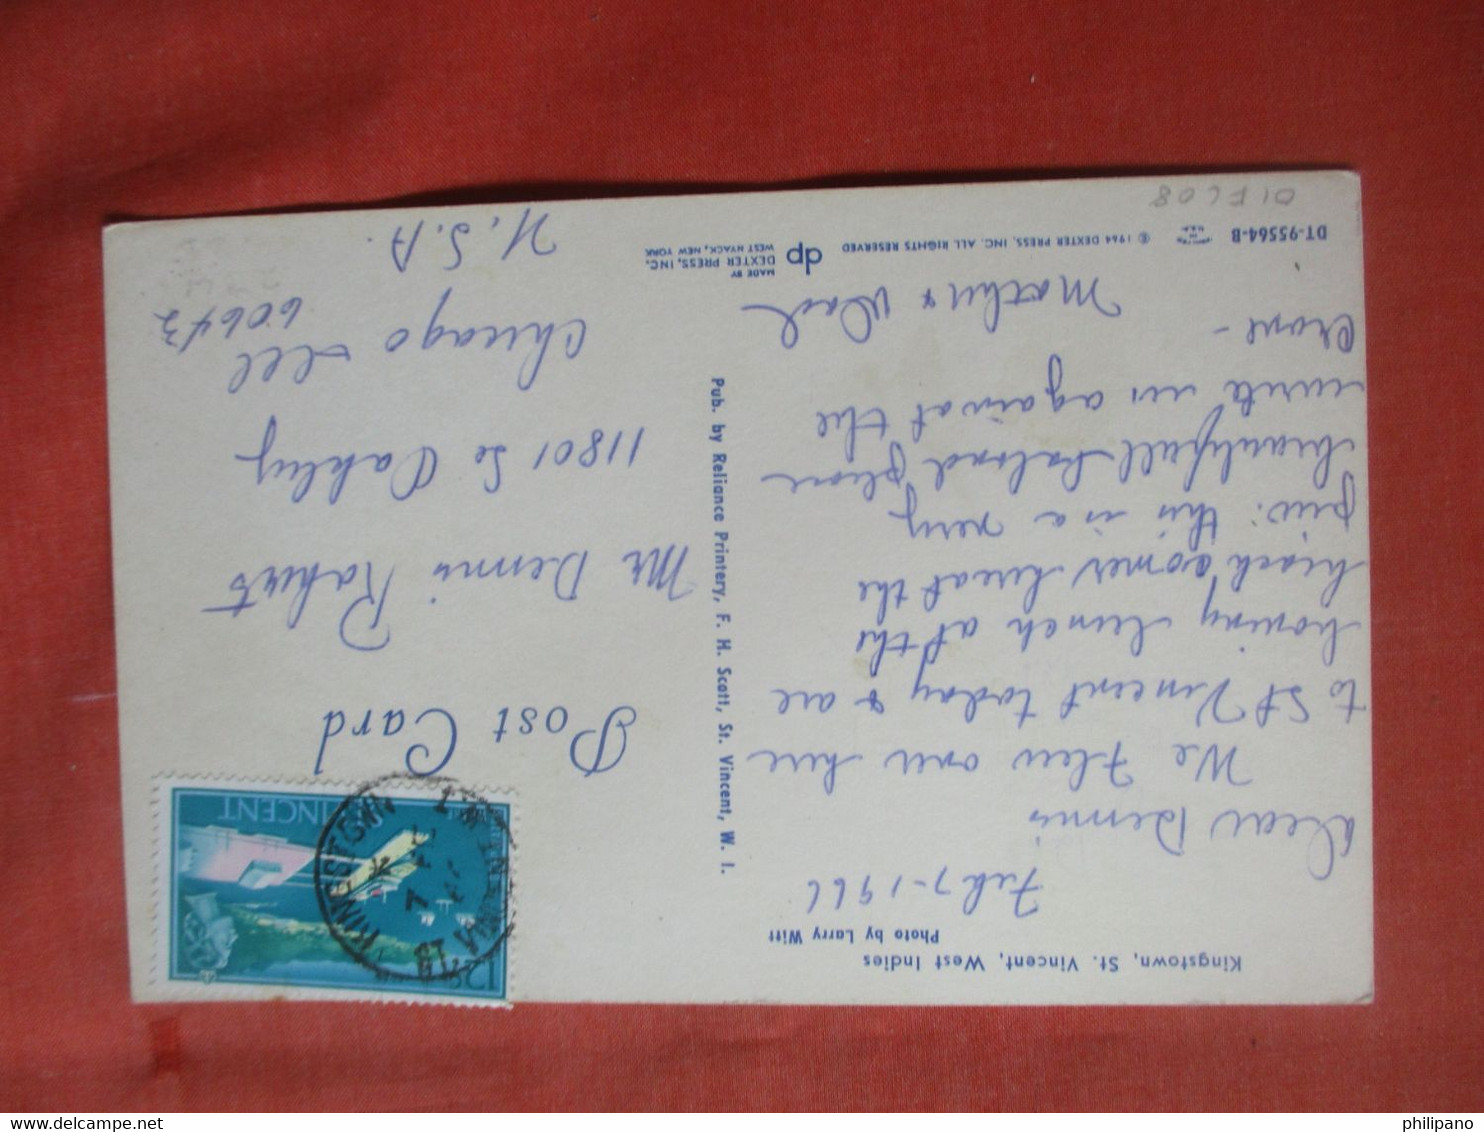 Kingstown, St. Vincent, West Indies
Photo by Larry Witt
Feb 7-1966
Dear Dennis
We flew over here
to St Vincent today & are
having lunch at the
beach comer hreat the
pin: this is a very
beautyfull Island please
write us again at the
Crane -
Mother & Dad
DT-95564-B
© 1964 DEXTER PRESS, INC. ALL RIGHTS RESERVED
dp
MADE BY
DEXTER PRESS, INC.
WEST NYACK, NEW YORK
01FL08
Pub. by Reliance Printery, F. H. Scott, St. Vincent, W. I.
Post Card
Mr Dennis Roberts
11801 So Oakley
Chicago Ill
60643
U.S.A
ST. VINCENT
12c
KINGSTOWN
ST. VINCENT W.I.
philipano